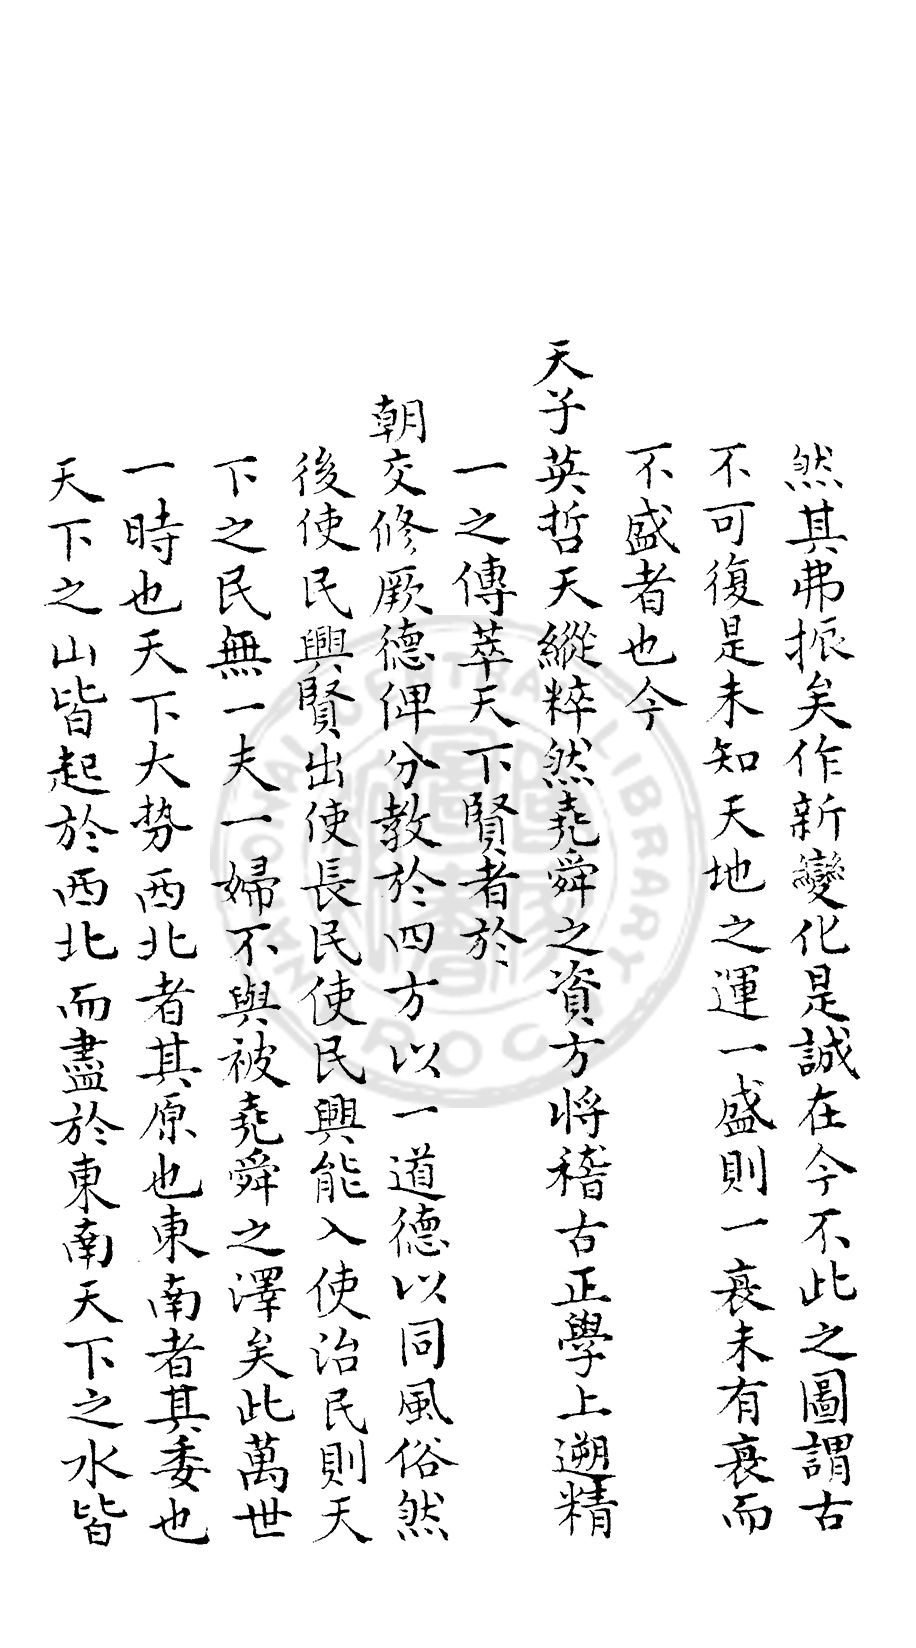 然其弗振矣作新變化是誠在今不此之圖謂古
不可復是未知天地之運一盛則一衰未有衰而
不盛者也今
天子英哲天縱粹然堯舜之資方將稽古正學上遡精
一之傳萃天下賢者於
朝交修厥德俾分教於四方以一道德以同風俗然
後使民興賢出使長民使民興能入使治民則天
下之民無一夫一婦不與被堯舜之澤矣此萬世
一時也天下大勢西北者其原也東南者其委也
天下之山皆起於西北而盡於東南天下之水皆
NATIONAL CENTRAL LIBRARY
TAIWAN R.O.C.